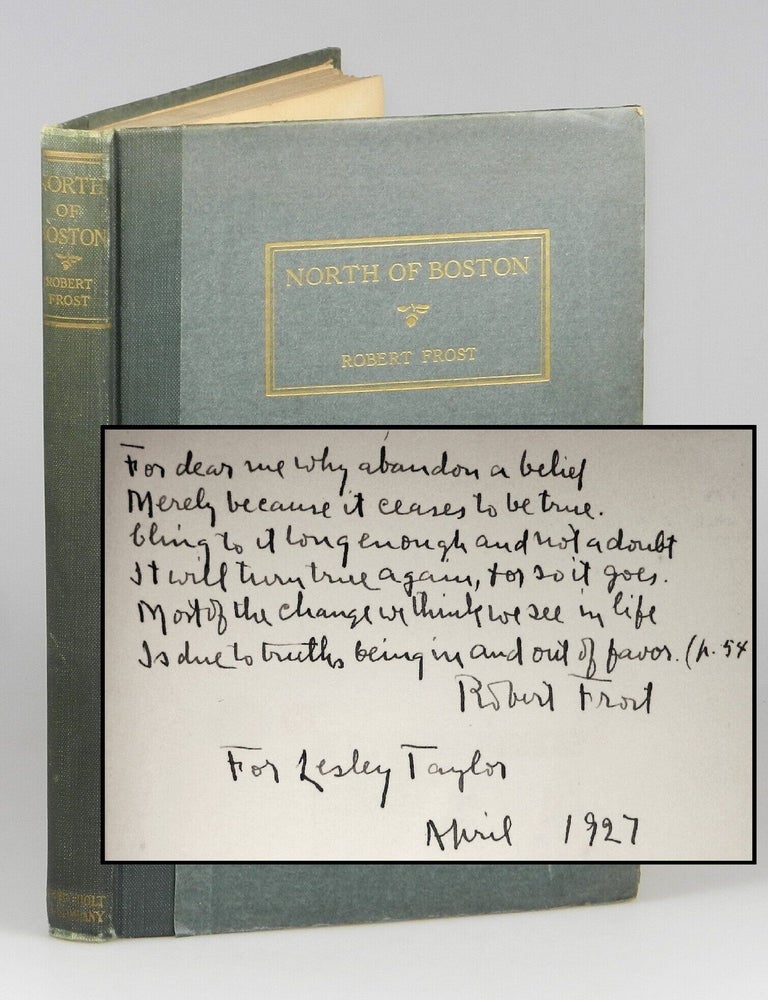 NORTH
OF
BOSTON
ROBERT
FROST
NORTH OF BOSTON
ROBERT FROST
For dear me why abandon a belief
Merely because it ceases to be true.
Cling to it long enough and not a doubt
It will turn true again, for so it goes.
Most of the change we think we see in life
Is due to truths being in and out of favor. (p. 54
Robert Frost
For Lesley Taylor
April 1927
HOLT
COMPANY